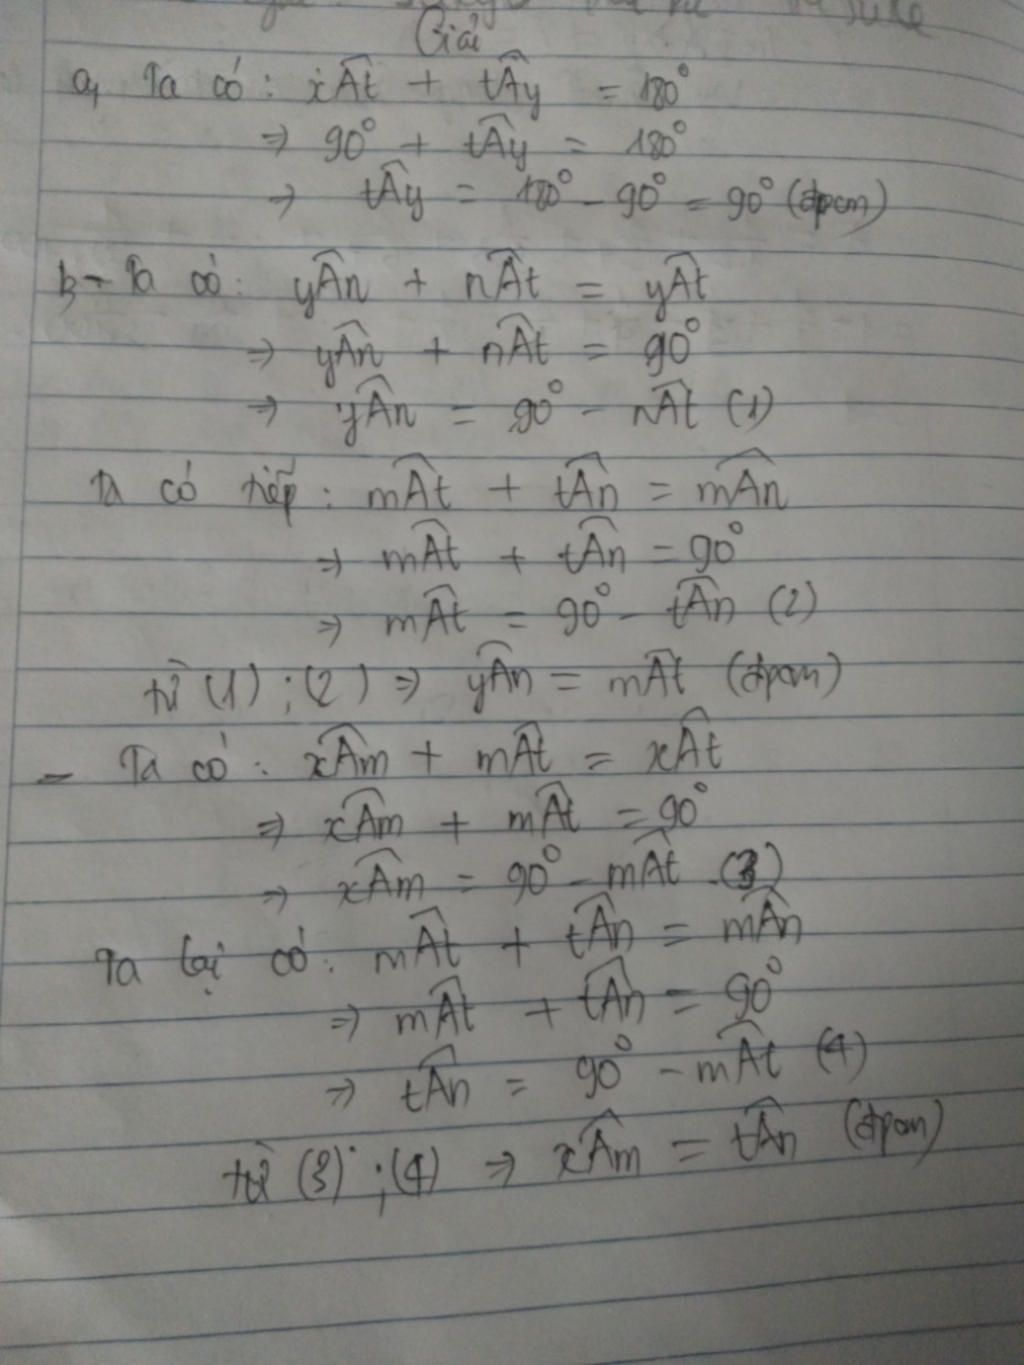 Giải
a, Ta có: xÂt + tÂy = 180°
⇒ 90° + tÂy = 180°
⇒ tÂy = 180° - 90° = 90° (đpcm)
b - Ta có: yÂn + nÂt = yÂt
⇒ yÂn + nÂt = 90°
⇒ yÂn = 90° - nÂt (1)
Ta có tiếp: mÂt + tÂn = mÂn
⇒ mÂt + tÂn = 90°
⇒ mÂt = 90° - tÂn (2)
từ (1) ; (2) ⇒ yÂn = mÂt (đpcm)
- Ta có: xÂm + mÂt = xÂt
⇒ xÂm + mÂt = 90°
⇒ xÂm = 90° - mÂt (3)
Ta lại có: mÂt + tÂn = mÂn
⇒ mÂt + tÂn = 90°
⇒ tÂn = 90° - mÂt (4)
từ (3) ; (4) ⇒ xÂm = tÂn (đpcm)